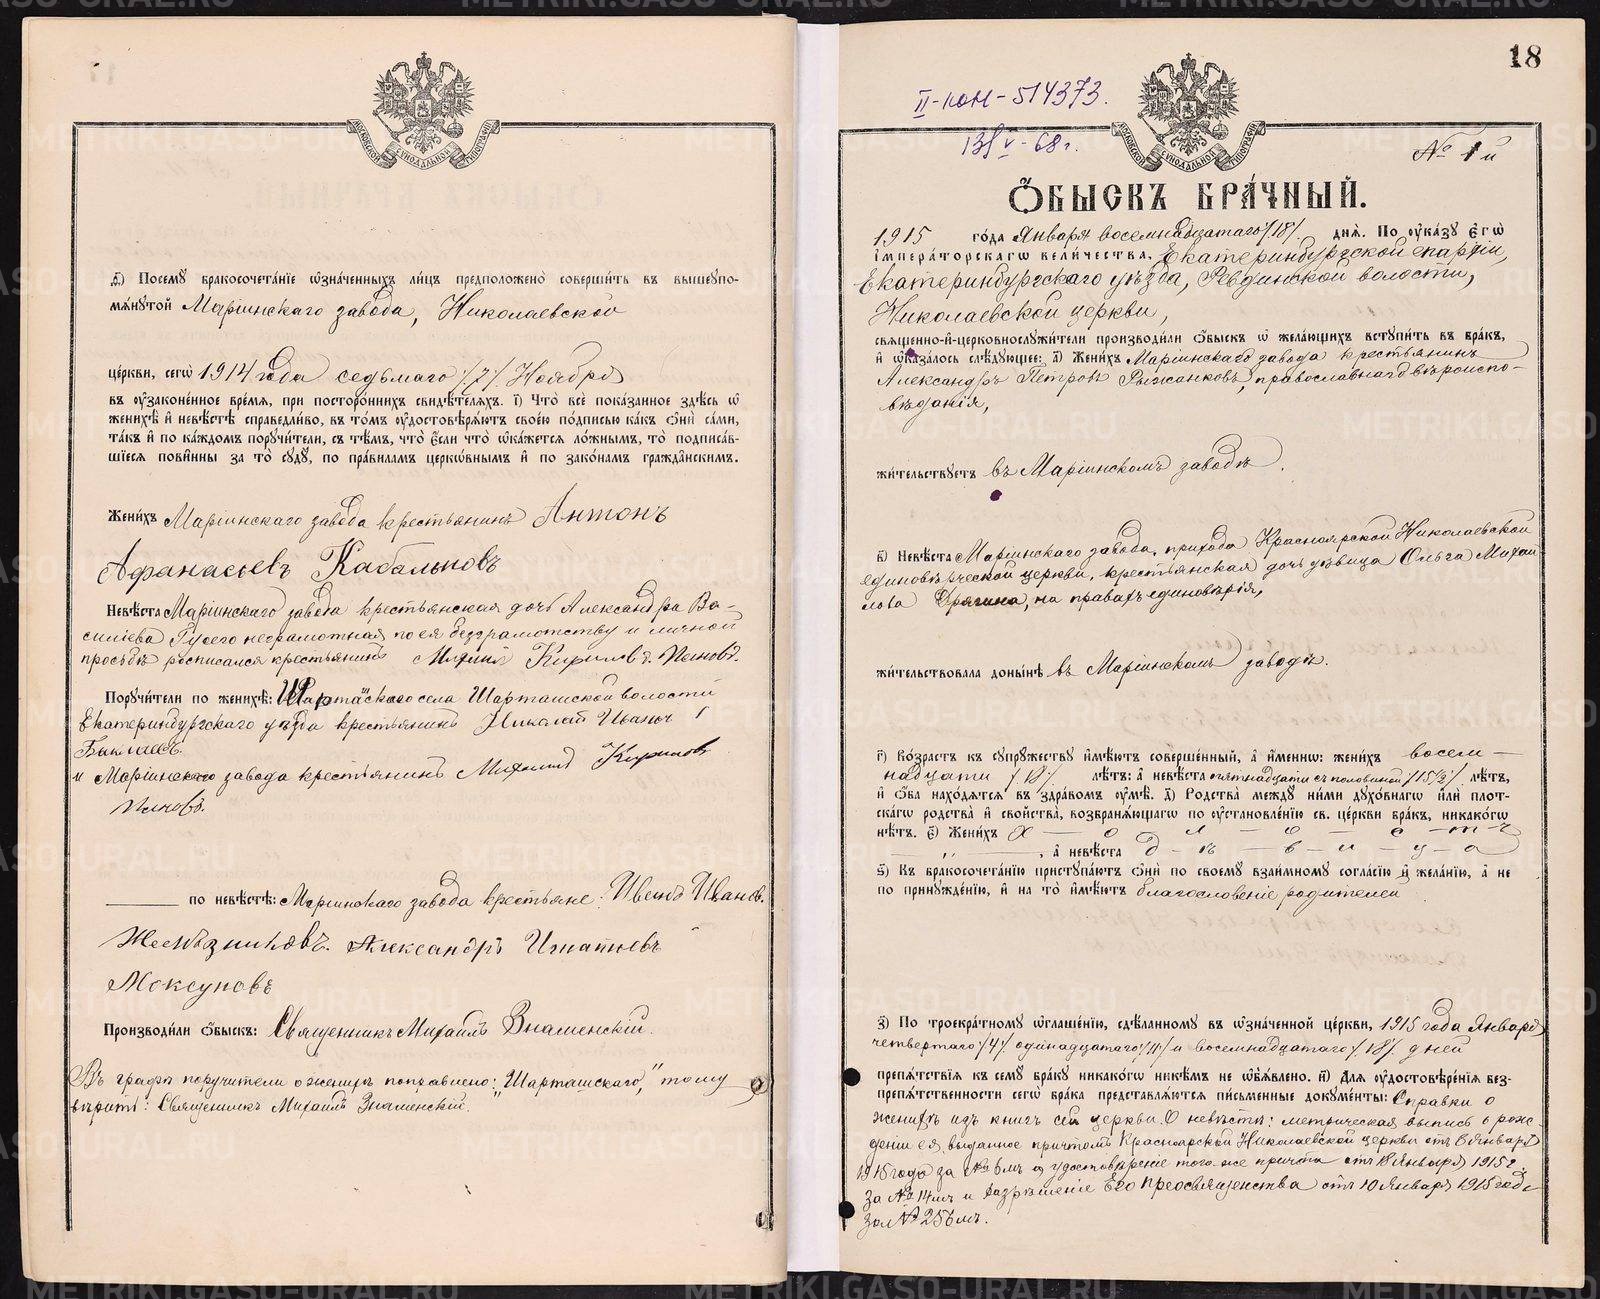 ҃) Посему бракосочетаніе ѡзначенныхъ лицъ предположено совершить въ вышеупо-
мянутой Маріинскаго завода, Николаевской
церкви, сегѡ 1914 года седьмаго /7/ Ноября
въ оузаконенное время, при постороннихъ свидѣтеляхъ. і) Что всё показанное здѣсь ѡ
женихѣ и невѣстѣ справедливо, въ томъ оудостовѣряютъ своею подписью какъ ѻни сами,
такъ и по каждомъ поручители, съ тѣмъ, что если что ѡкажется ложнымъ, то подписав-
шіеся повинны за то суду, по правиламъ церкѡвнымъ и по законамъ гражданскимъ.
Женихъ Маріинскаго завода крестьянинъ Антонъ
Афанасьевъ Кабальновъ
Невѣста Маріинскаго завода крестьянская дочь Александра Ва-
силіева Гусего неграмотная по ея безграмотству и личной
просьбѣ росписался крестьянинъ Михаил Кириловъ
Поручители по женихѣ: Шарташскаго села Шарташской волости
Екатеринбургскаго уѣзда крестьянинъ Николай Иванъ
и Маріинскаго завода крестьянинъ Михаилъ Кириловъ
по невѣстѣ: Маріинскаго завода крестьяне: Иванъ Иванов.
Желѣзниковъ. Александръ Игнатьевъ
Моксуновъ
Производили ѻбыскъ: Священникъ Михаилъ Знаменскій.
Въ графѣ поручители о женихѣ поправлено: "Шарташскаго," тому
вѣрить: Священникъ Михаилъ Знаменскій.
18
II-ПОМ-514373.
13/V-68г.
№ 1й
ѺБЫСКЪ БРАЧНЫЙ.
1915 года Января восемнадцатаго /18/ дня. По оуказу Егѡ
Императорскагѡ величества, Екатеринбургской епархіи,
Екатеринбургскаго уѣзда, Ревдинской волости,
Николаевской церкви,
свѧщенно-и-церковнослужители производили ѻбыскъ ѡ желающихъ вступить въ бракъ,
и ѡказалось слѣдующее: а) Женихъ Маріинскаго завода крестьянинъ
Александръ Петровъ Рыжанковъ, православнаго вѣроиспо-
вѣданія,
жительствуетъ въ Маріинскомъ заводѣ.
в) Невѣста Маріинскаго завода, прихода Красноярской Николаевской
единовѣрческой церкви, крестьянская дочь дѣвица Ольга Михаи
лова Дрягина, на правахъ единовѣрія,
жительствовала донынѣ въ Маріинскомъ заводѣ.
г) Возрастъ къ супружеству имѣютъ совершенный, а именнѡ: женихъ восем-
надцати /18/ лѣтъ: а невѣста пятнадцати съ половиной /15½/ лѣтъ,
и ѻба находятся въ здравомъ оумѣ. д) Родства между ними духовнагѡ или плот-
скагѡ родства и свойства, возвраняющагѡ по оустановленію св. церкви бракъ, никакогѡ
нѣтъ. е) Женихъ Х - о - л - о - с - т - ъ
- " -, а невѣста д - ѣ - в - и - ц - а
ѕ) Къ бракосочетанію приступаютъ ѻни по своему взаимному согласію и желанію, а не
по принужденію, и на то имѣютъ благословеніе родителей
з) По троекратному ѡглашенію, сдѣланному въ ѡзначенной церкви, 1915 года Января
четвертаго /4/, одинадцатаго /11/ и восемнадцатаго /18/ дней
препятствія къ сему браку никакогѡ никѣмъ не ѡбъявлено. и) Для оудостовѣренія без-
препятственности сегѡ брака представляются письменные документы: Справки о
женихѣ изъ книгъ сей церкви. О невѣстѣ: метрическая выпись о рож-
деніи ея, выданное причтомъ Красноярской Николаевской церкви отъ 6 Января
1915 года за № 6мъ и удостовѣреніе того-же причта отъ 18 Января 1915 г.
за № 14мъ и Разрѣшеніе Его Преосвященства отъ 10 Января 1915 года
за № 256мъ.